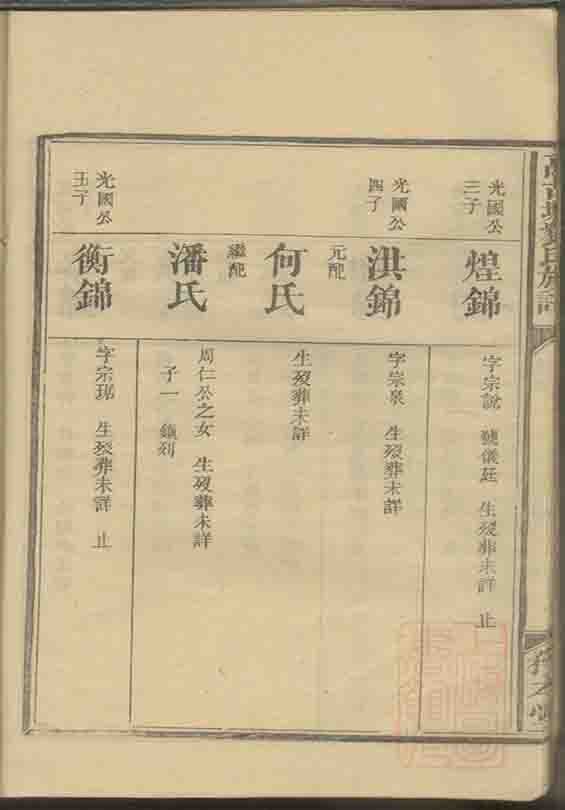 光國公
三子
煌錦
字宗說 號儀廷 生歿葬未詳 止
光國公
四子
淇錦
字宗泉 生歿葬未詳
元配
何氏
生歿葬未詳
繼配
潘氏
周仁公之女 生歿葬未詳
子一
光國公
五子
衡錦
字宗琚 生歿葬未詳 止